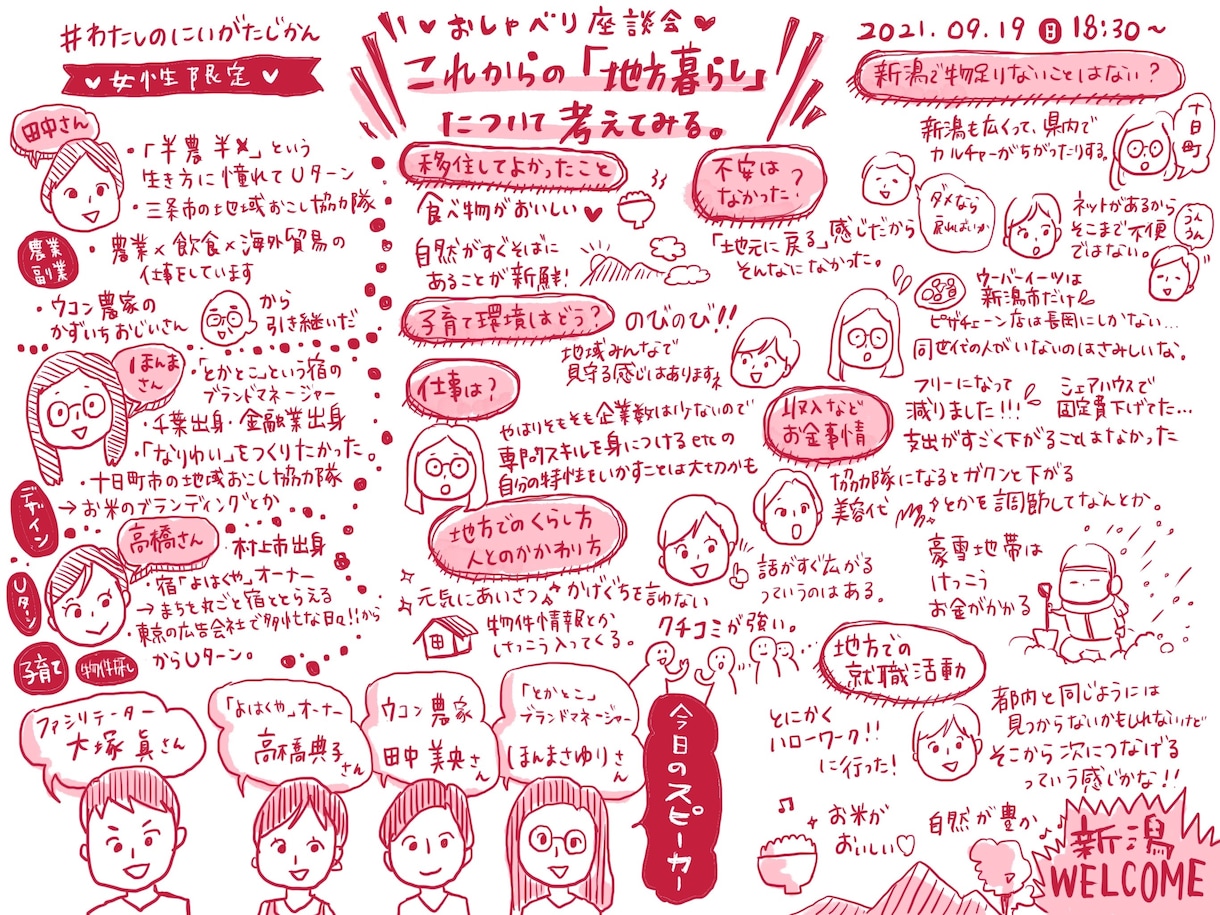 #わたしのにいがたじかん
♥ 女性限定 ♥
♥ おしゃべり座談会 ♥
これからの「地方暮らし」
について考えてみる。
2021.09.19 日 18:30~
田中さん
・「半農半X」という
生き方に憧れてUターン
・三条市の地域おこし協力隊
農業
副業
・農業×飲食×海外貿易の
仕事をしています
・ウコン農家の
かずいちおじいさん
から
引き継いだ
ほんま
さん
・「とかとこ」という宿の
ブランドマネージャー
・千葉出身・金融業出身
・「なりわい」をつくりたかった。
・十日町市の地域おこし協力隊
→お米のブランディングとか
デザイン
高橋さん
・村上市出身
・宿「よはくや」オーナー
→まちを丸ごと宿ととらえる
・東京の広告会社で多忙な日々!!から
からUターン。
Uターン
子育て
物件探し
移住してよかったこと
食べ物がおいしい♥
自然がすぐそばに
あることが新鮮!
不安は
なかった?
「地元に戻る」感じだから
そんなになかった。
ダメなら
戻ればいいか
子育て環境はどう?
のびのび!!
地域みんなで
見守る感じはあります
仕事は?
やはりそもそも企業数は少ないので
専門スキルを身につけるetcの
自分の特性をいかすことは大切かも
地方でのくらし方
人とのかかわり方
元気にあいさつ
かげぐちを言わない
物件情報とか
けっこう入ってくる。
話がすぐ広がる
っていうのはある。
クチコミが強い。
新潟で物足りないことはない?
新潟も広くって、県内で
カルチャーがちがったりする。
十日町
ネットがあるから
そこまで不便
ではない。
うんうん
ウーバーイーツは
新潟市だけ
ピザチェーン店は長岡にしかない…
同世代の人がいないのはさみしいな。
収入など
お金事情
フリーになって
減りました!!!
シェアハウスで
固定費下げてた…
支出がすごく下がることはなかった
協力隊になるとガクンと下がる
美容代
とかを調節してなんとか。
豪雪地帯は
けっこう
お金がかかる
地方での
就職活動
とにかく
ハローワーク!!
に行った!
都内と同じようには
見つからないかもしれないけど
そこから次につなげる
っていう感じかな!!
ファシリテーター
大塚眞さん
「よはくや」オーナー
高橋典子さん
ウコン農家
田中美央さん
「とかとこ」
ブランドマネージャー
ほんまさゆりさん
今日のスピーカー
お米が
おいしい♡
自然が豊か
新潟
WELCOME